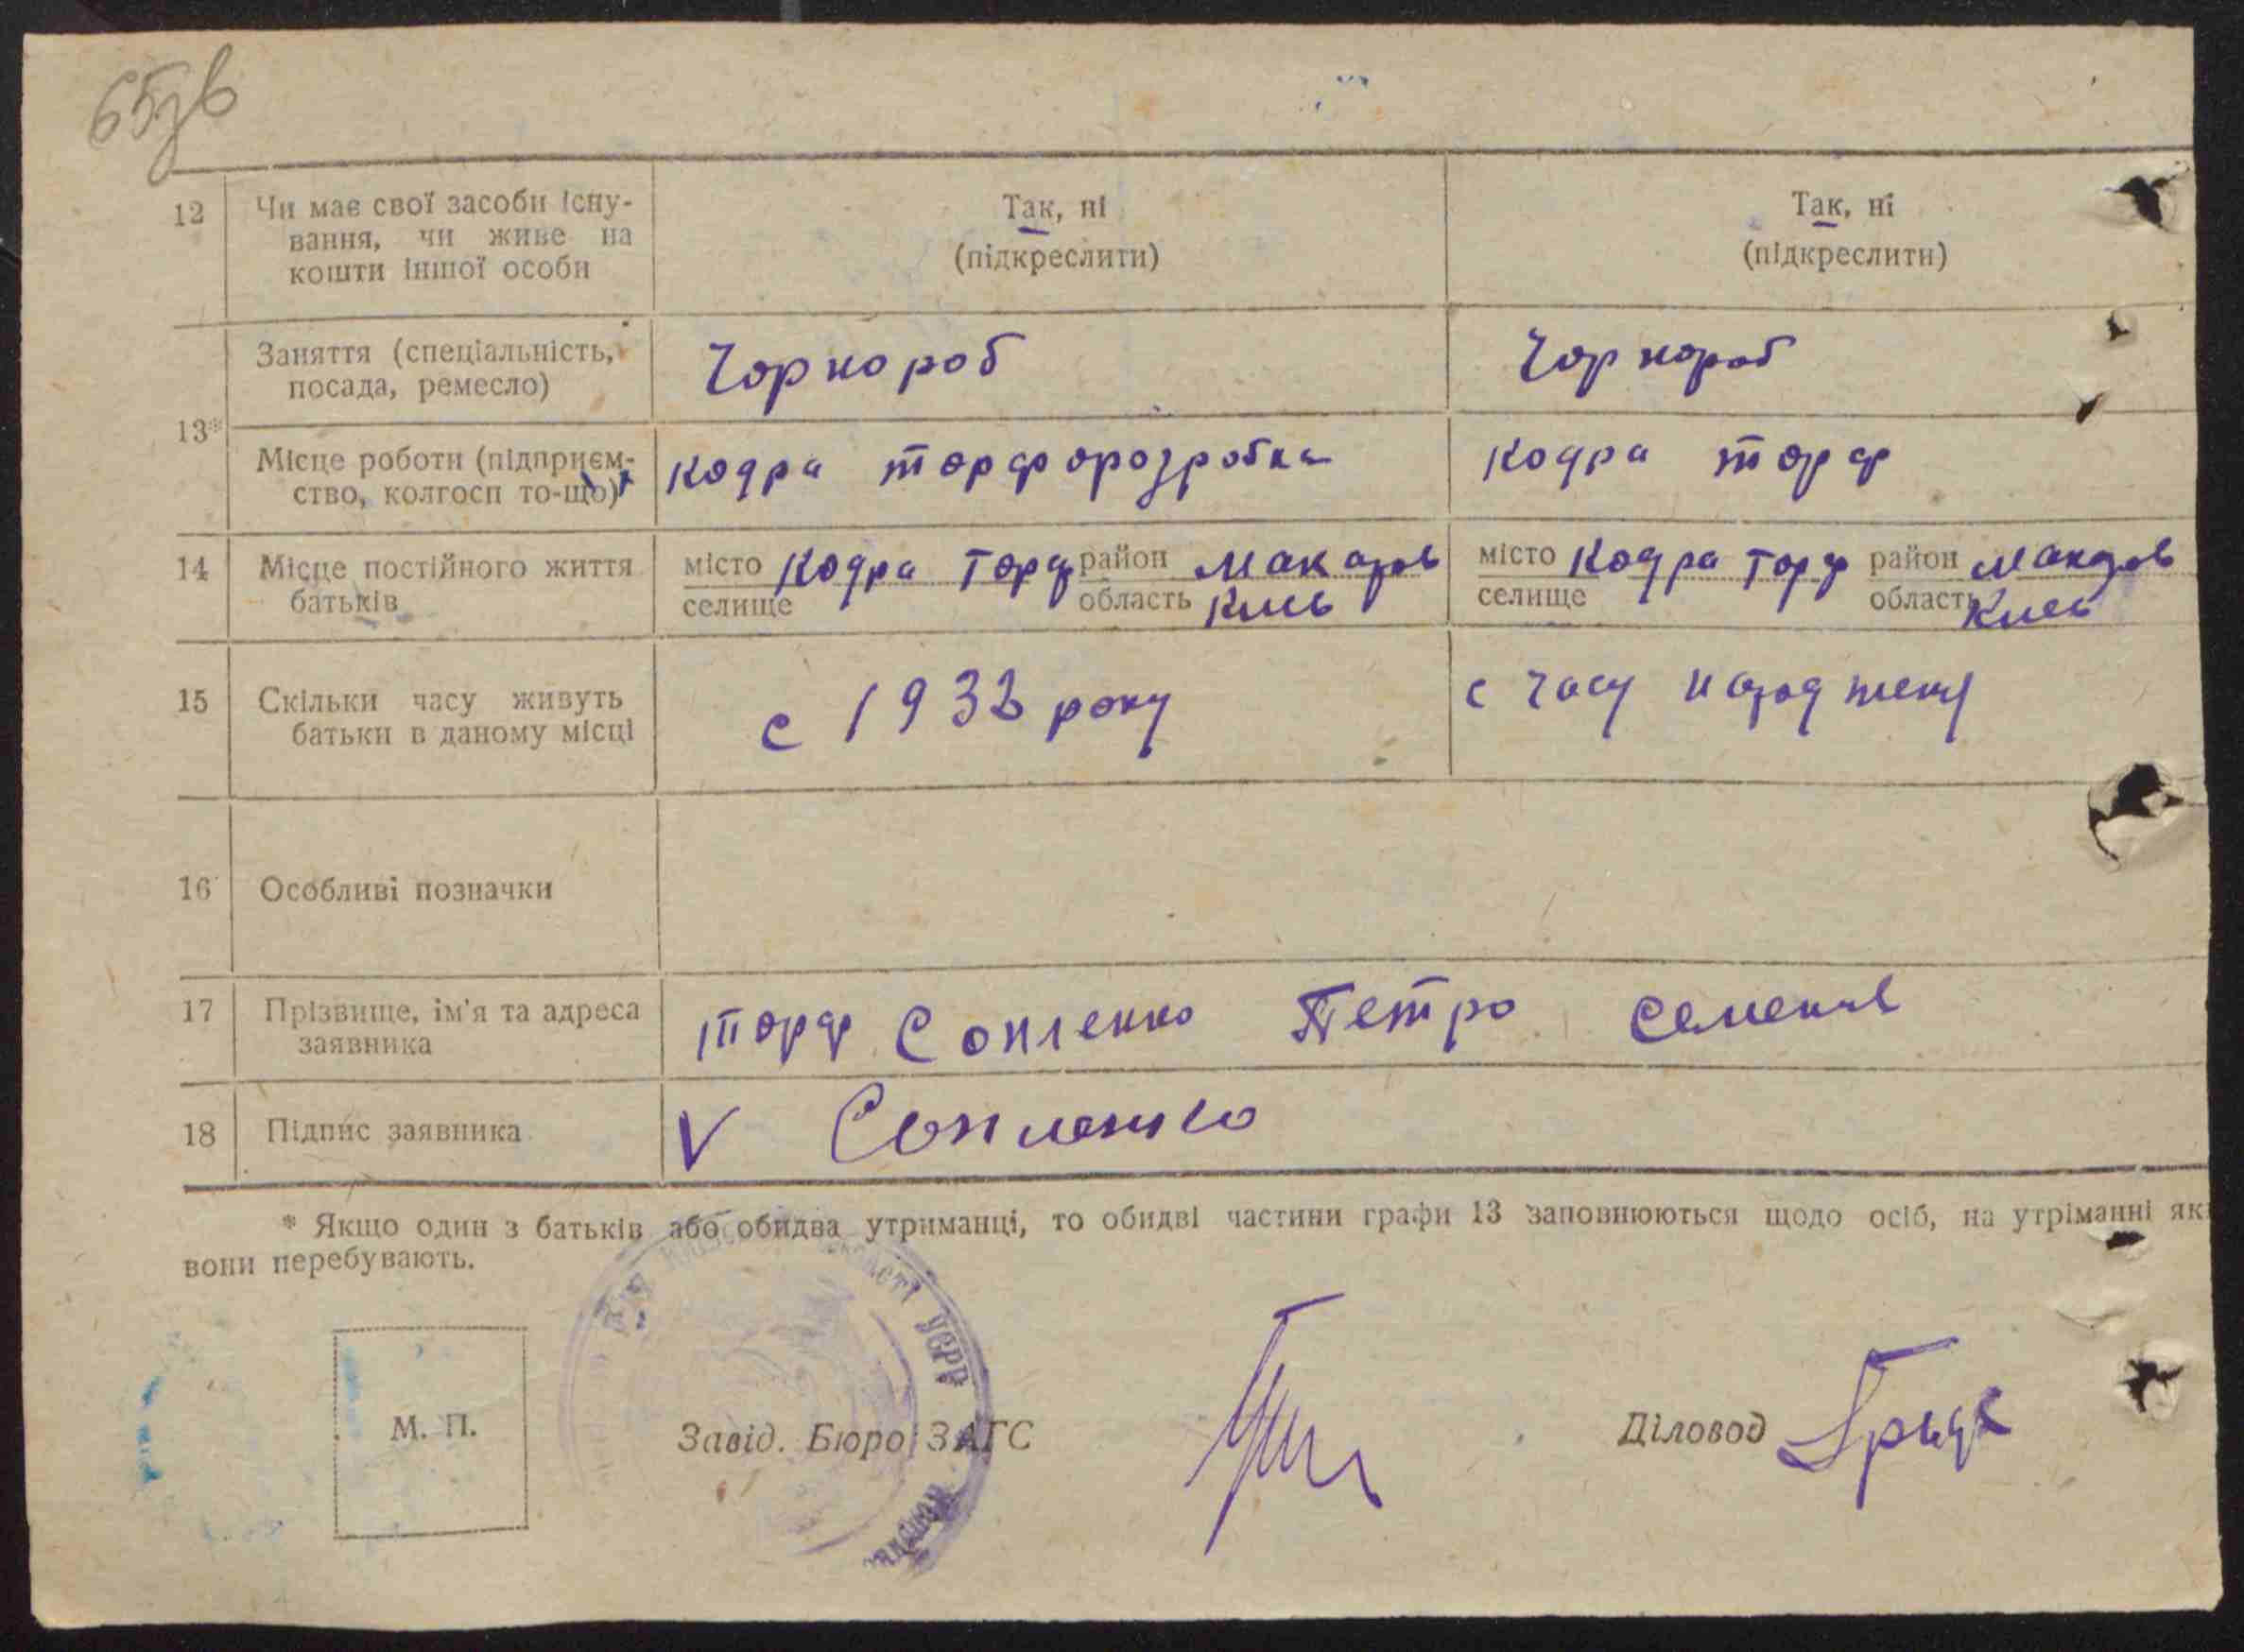 65зв
12 Чи має свої засоби існу-
вання, чи живе на
кошти іншої особи
Так, ні
(підкреслити)
Так, ні
(підкреслити)
13*
Заняття (спеціальність,
посада, ремесло)
Чорнороб
Чорнороб
Місце роботи (підприєм-
ство, колгосп то-що)
Кодра торфорозробка
Кодра торф
14 Місце постійного життя
батьків
місто Кодра Торф район Макаров
селище область Киев
місто Кодра Торф район Макаров
селище область Киев
15 Скільки часу живуть
батьки в даному місці
с 1933 року
с часу народження
16 Особливі позначки
17 Прізвище, ім'я та адреса
заявника
торф Сопленко Петро Семенов
18 Підпис заявника
V Сопленко
* Якщо один з батьків або обидва утриманці, то обидві частини графи 13 заповнюються щодо осіб, на утріманні як
вони перебувають.
УСРР
М. П.
Завід. Бюро ЗАГС
Діловод